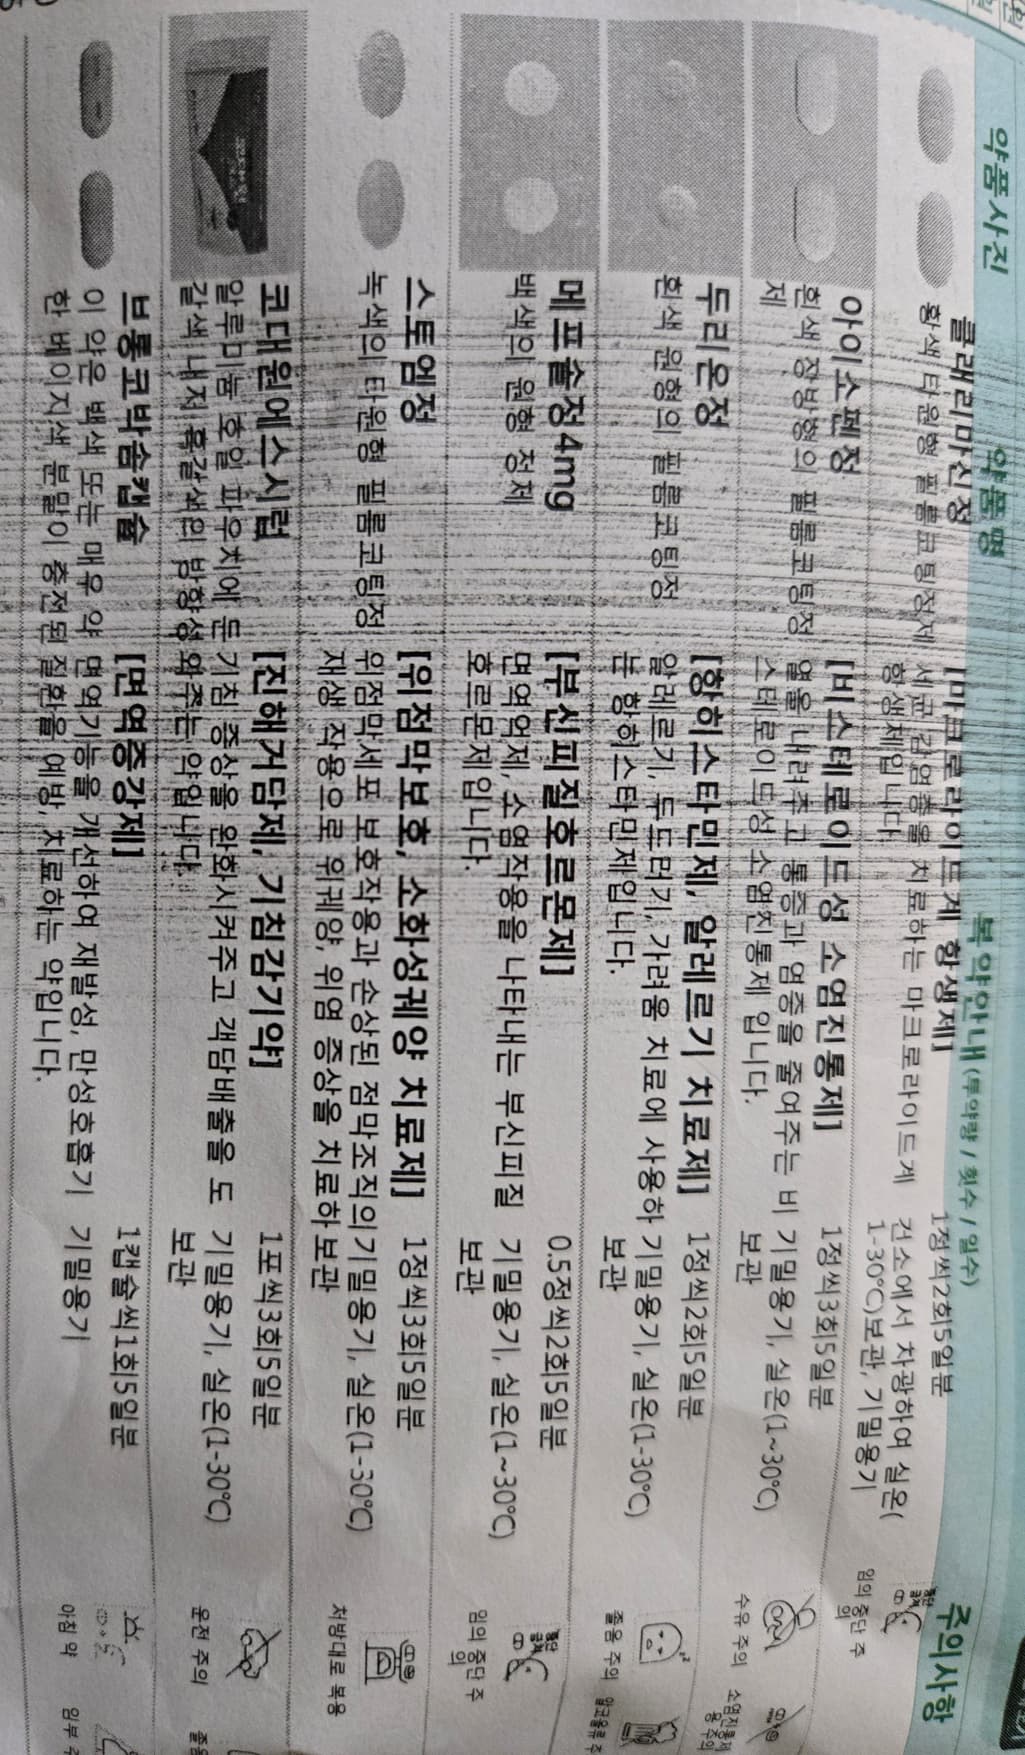 약품사진 약품명 복약안내(투약량 / 횟수 / 일수) 주의사항
클래리마신정 [마크로라이드계 항생제] 1정씩2회5일분
황색 타원형 필름코팅정제 세균 감염증을 치료하는 마크로라이드계 건소에서 차광하여 실온(
항생제입니다. 1-30℃)보관, 기밀용기
임의 중단 주
의
아이소펜정 [비스테로이드성 소염진통제] 1정씩3회5일분
흰색 장방형의 필름코팅정 열을 내려주고 통증과 염증을 줄여주는 비 기밀용기, 실온(1~30℃)
제 스테로이드성 소염진통제 입니다. 보관
수유 주의 소염진통제
용 주의
두리온정 [항히스타민제, 알레르기 치료제] 1정씩2회5일분
흰색 원형의 필름코팅정 알레르기, 두드러기, 가려움 치료에 사용하 기밀용기, 실온(1-30℃)
는 항히스타민제입니다. 보관
졸음 주의 알코올류 주
메프솔정4mg [부신피질호르몬제] 0.5정씩2회5일분
백색의 원형 정제 면역억제, 소염작용을 나타내는 부신피질 기밀용기, 실온(1~30℃)
호르몬제입니다. 보관
임의 중단 주
의
스토엠정 [위점막보호, 소화성궤양 치료제] 1정씩3회5일분
녹색의 타원형 필름코팅정 위점막세포 보호작용과 손상된 점막조직의 기밀용기, 실온(1-30℃)
재생 작용으로 위궤양, 위염 증상을 치료하 보관
처방대로 복용
코대원에스시럽 [진해거담제, 기침감기약] 1포씩3회5일분
알루미늄 호일 파우치에 든 기침 증상을 완화시켜주고 객담배출을 도 기밀용기, 실온(1-30℃)
갈색 내지 흑갈색의 방향성 와주는 약입니다. 보관
운전 주의 졸음
브롱코박솜캡슐 [면역증강제] 1캡슐씩1회5일분
이 약은 백색 또는 매우 약 면역기능을 개선하여 재발성, 만성호흡기 기밀용기
한 베이지색 분말이 충전된 질환을 예방, 치료하는 약입니다.
아침 약 임부 주